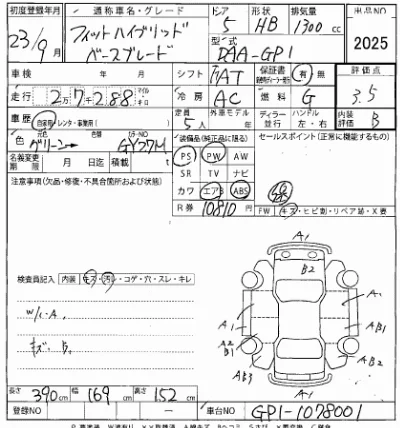 初度登録年月 通称車名・グレード ドア 形状 排気量 出品NO
23/9月 フィットハイブリッド ベースグレード 5 HB 1300cc 2025
型式 DAA-GP1
車検 年 月 シフト FAT 保証書 有・無 評価点
走行 2万7千288 冷房 AC 燃料 G 3.5
車歴 自家用・レンタ・事業用( ) 定員 5人 外車モデル 年 ディーラー 並行 ハンドル 左・右 内装評価 B
色 元色 グリーン 色替 カラーNO GY27M
装備品(純正品に限る) セールスポイント(正常に機能するもの)
名義変更期限 月 日迄 積載 t
PS PW AW
SR TV ナビ
カワ エアB ABS
R券 10810円
FW キズ・ヒビ割・リペア跡・X要
注意事項(欠品・修復・不具合箇所および状態)
検査員記入 内装 キズ・汚レ・コゲ・穴・スレ・キレ
W/C-A.
キズ B.
A1
B2
A1 A1
A1 AB1
A2 B1
AB3 B2
A1
長さ 390cm 幅 169cm 高さ 152cm
登録NO ー 車台NO GP1-1078001